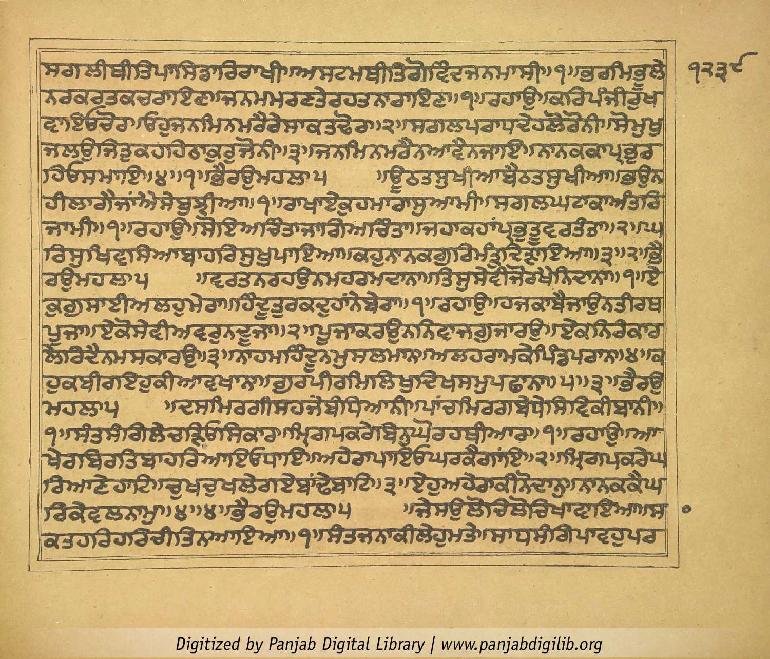 ਸਗਲੀਥੀਤਿਪਾਸਿਡਾਰਿਰਾਖੀ॥ਅਸਟਮਥੀਤਿਗੋਵਿੰਦਜਨਮਾਸੀ॥੧॥ਭਰਮਿਭੂਲੇ
ਨਰਕਰਤਕਚਰਾਇਣ॥ਜਨਮਮਰਣਤੇਰਹਤਨਾਰਾਇਣ॥੧॥ਰਹਾਉ॥ਕਰਿਪੰਜੀਰੁਖ
ਵਾਇਓਚੋਰ॥ਓਹੁਜਨਮਿਨਮਰੈਰੇਸਾਕਤਢੋਰ॥੨॥ਸਗਲਪਰਾਧਦੇਹਲੋਰੋਨੀ॥ਸੋਮੁਖੁ
ਜਲਉਜਿਤੁਕਹਹਿਠਾਕੁਰੁਜੋਨੀ॥੩॥ਜਨਮਿਨਮਰੈਨਆਵੈਨਜਾਇ॥ਨਾਨਕਕਾਪ੍ਰਭੁਰ
ਹਿਓਸਮਾਇ॥੪॥੧॥ਭੈਰਉਮਹਲਾ੫ ॥ਊਠਤਸੁਖੀਆਬੈਠਤਸੁਖੀਆ॥ਭਉਨ
ਹੀਲਾਗੈਜਾਂਐਸੇਬੁਝੀਆ॥੧॥ਰਾਖਾਏਕੁਹਮਾਰਾਸੁਆਮੀ॥ਸਗਲਘਟਾਕਾਅੰਤਰਿ
ਜਾਮੀ॥੧॥ਰਹਾਉ॥ਸੋਇਅਚਿੰਤਾਜਾਗਿਅਚਿੰਤਾ॥ਜਹਾਕਹਾਂਪ੍ਰਭੁਤੂੰਵਰਤੰਤਾ॥੨॥ਘ
ਰਿਸੁਖਿਵਸਿਆਬਾਹਰਿਸੁਖੁਪਾਇਆ॥ਕਹੁਨਾਨਕਗੁਰਿਮੰਤ੍ਰੁਦ੍ਰਿੜਾਇਆ॥੩॥੨॥ਭੈ
ਰਉਮਹਲਾ੫ ॥ਵਰਤਨਰਹਉਨਮਹਰਮਦਾਨਾ॥ਤਿਸੁਸੇਵੀਜੋਰਖੈਨਿਦਾਨਾ॥੧॥ਏ
ਕੁਗੁਸਾਈਅਲਹੁਮੇਰਾ॥ਹਿੰਦੂਤੁਰਕਦੁਹਾਂਨੇਬੇਰਾ॥੧॥ਰਹਾਉ॥ਹਜਕਾਬੈਜਾਉਨਤੀਰਥ
ਪੂਜਾ॥ਏਕੋਸੇਵੀਅਵਰੁਨਦੂਜਾ॥੨॥ਪੂਜਾਕਰਉਨਨਿਵਾਜਗੁਜਾਰਉ॥ਏਕਨਿਰੰਕਾਰ
ਲੇਰਿਦੈਨਮਸਕਾਰਉ॥੩॥ਨਾਹਮਹਿੰਦੂਨਮੁਸਲਮਾਨ॥ਅਲਹਰਾਮਕੇਪਿੰਡੁਪਰਾਨ॥੪॥ਕ
ਹੁਕਬੀਰਇਹੁਕੀਆਵਖਾਨਾ॥ਗੁਰਪੀਰਮਿਲਿਖੁਦਿਖਸਮੁਪਛਾਨਾ॥੫॥੩॥ਭੈਰਉ
ਮਹਲਾ੫ ॥ਦਸਮਿਰਗੀਸਹਜੇਬੰਧਿਆਨੀ॥ਪਾਂਚਮਿਰਗਬੇਧੇਸਿਵਕੀਬਾਨੀ॥
੧॥ਸੰਤਸੰਗਿਲੇਚੜਿਓਸਿਕਾਰ॥ਮ੍ਰਿਗਪਕਰੇਬਿਨੁਘੋਰਹਥੀਆਰ॥੧॥ਰਹਾਉ॥ਆ
ਖੇਰਬਿਰਤਿਬਾਹਰਿਆਇਓਧਾਇ॥ਅਹੇਰਾਪਾਇਓਘਰਕੈਗਾਂਇ॥੨॥ਮ੍ਰਿਗਪਕਰੇਘ
ਰਿਆਣੇਹਾਟਿ॥ਚੁਖਚੁਖਲੇਗਏਬਾਂਢੇਬਾਟਿ॥੩॥ਏਹੁਅਹੇਰਾਕੀਨੋਦਾਨੁ॥ਨਾਨਕਕੈਘ
ਰਿਕੇਵਲਨਾਮੁ॥੪॥੪॥ਭੈਰਉਮਹਲਾ੫ ॥ਜੇਸਉਲੋਚਿਲੋਚਿਖਾਵਾਇਆ॥ਸਾ
ਕਤਹਰਿਹਰਿਚੀਤਿਨਆਇਆ॥੧॥ਸੰਤਜਨਾਕੀਲੇਹੁਮਤੇ॥ਸਾਧਸੰਗਿਪਾਵਹੁਪਰ
੧੨੩੯
Digitized by Panjab Digital Library | www.panjabdigilib.org